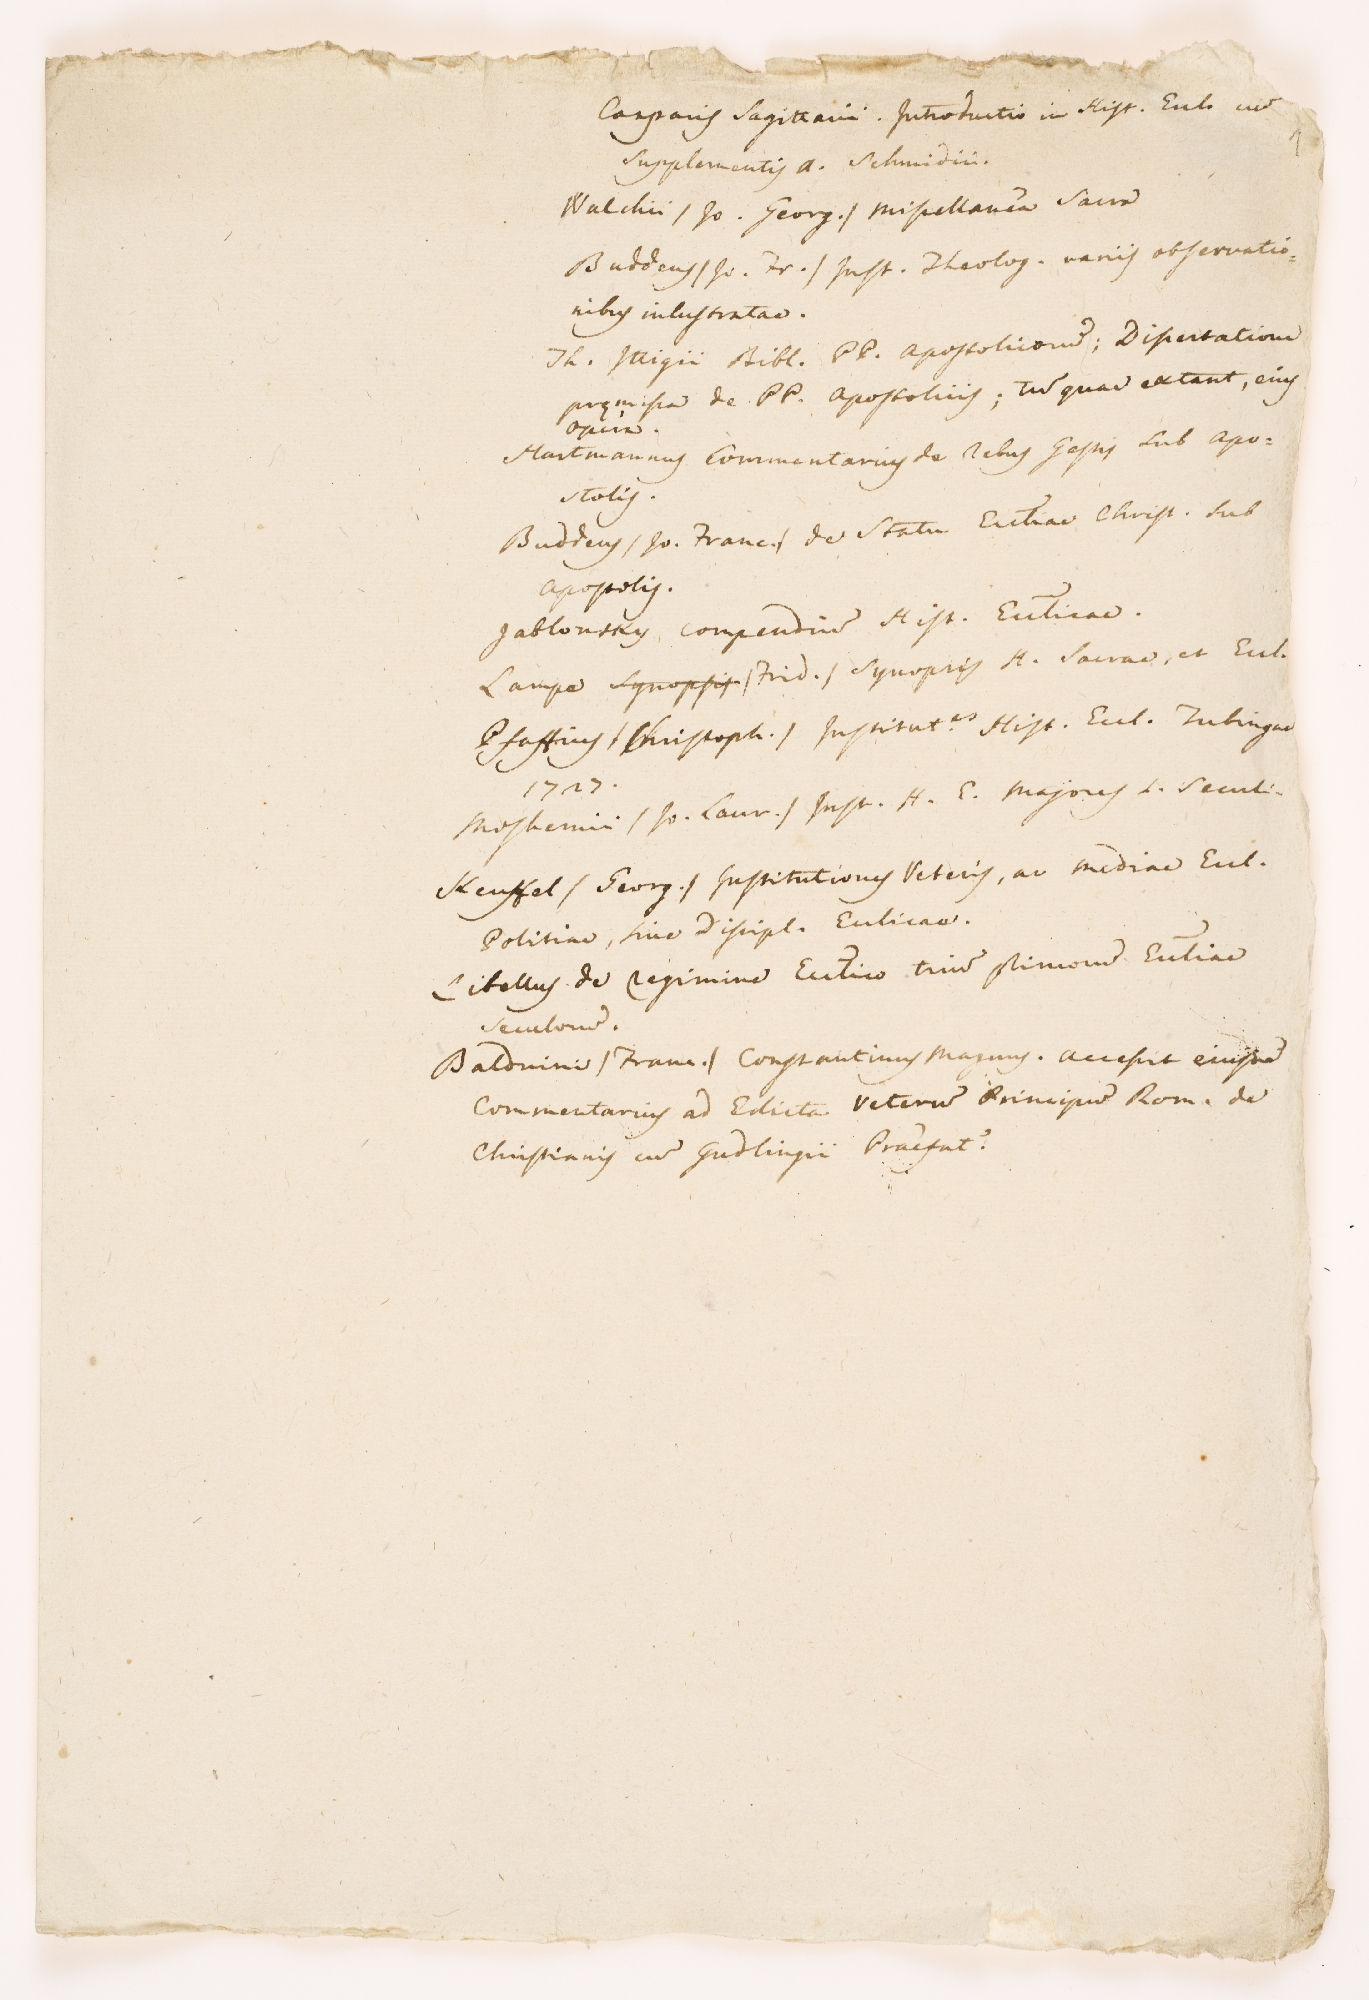 Casparis Sagittarii. Introductio in Hist. Eccl. cū
Supplementis a. Schmidii.
Walchii /Jo. Georg./ Miscellanea Sacra
Buddeus /Jo. Fr./ Inst. Theolog. variis observatio=
nibus inlustratae.
Th. Ittigii Bibl. PP. Apostolicorū; Dissertatione
pręmissa de PP. Apostolicis; tū quae extant, eius
opera.
Hartmannus Commentarius de rebus Gestis sub Apo=
stolis.
Buddeus /Jo. Franc./ de Statu Eccłiae Christ. sub
Apostolis.
Jablonsky compendiū Hist. Eccłicae.
Lampe Synopsis /Frid./ Synopsis H. Sacrae, et Eccl.
Pfaffius /Christoph./ Institut.es Hist. Eccl. Tubingae
1727.
Moshemii /Jo. Laur./ Inst. H. E. Majores I. Seculi.
Keuffel /Georg./ Institutiones Veteris, ac mediae Eccl.
Politiae, sive Discipl. Ecclicae.
Libellus de regimine Eccłico triū primorū Eccłiae
Seculorū.
Balduini /Franc./ Constantinus Magnus. Accessit eiusdē
Commentarius ad Edicta Veterū Principū Rom. de
Christianis cū Gudlingii Praefat.e